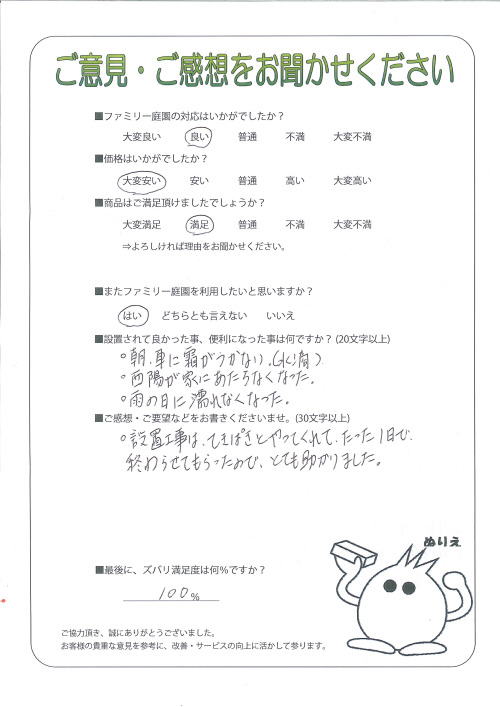 ご意見・ご感想をお聞かせください
■ファミリー庭園の対応はいかがでしたか？
大変良い 良い 普通 不満 大変不満
■価格はいかがでしたか？
大変安い 安い 普通 高い 大変高い
■商品はご満足頂けましたでしょうか？
大変満足 満足 普通 不満 大変不満
⇒よろしければ理由をお聞かせください。
■またファミリー庭園を利用したいと思いますか？
はい どちらとも言えない いいえ
■設置されて良かった事、便利になった事は何ですか？(20文字以上)
○朝、車に霜がつかない。(水滴)
○西陽が家にあたらなくなった。
○雨の日に濡れなくなった。
■ご感想・ご要望などをお書きくださいませ。(30文字以上)
○設置工事は、てきぱきとやってくれて、たった1日で、
終わらせてもらったので、とても助かりました。
ぬりえ
■最後に、ズバリ満足度は何％ですか？
100％
ご協力頂き、誠にありがとうございました。
お客様の貴重な意見を参考に、改善・サービスの向上に活かして参ります。